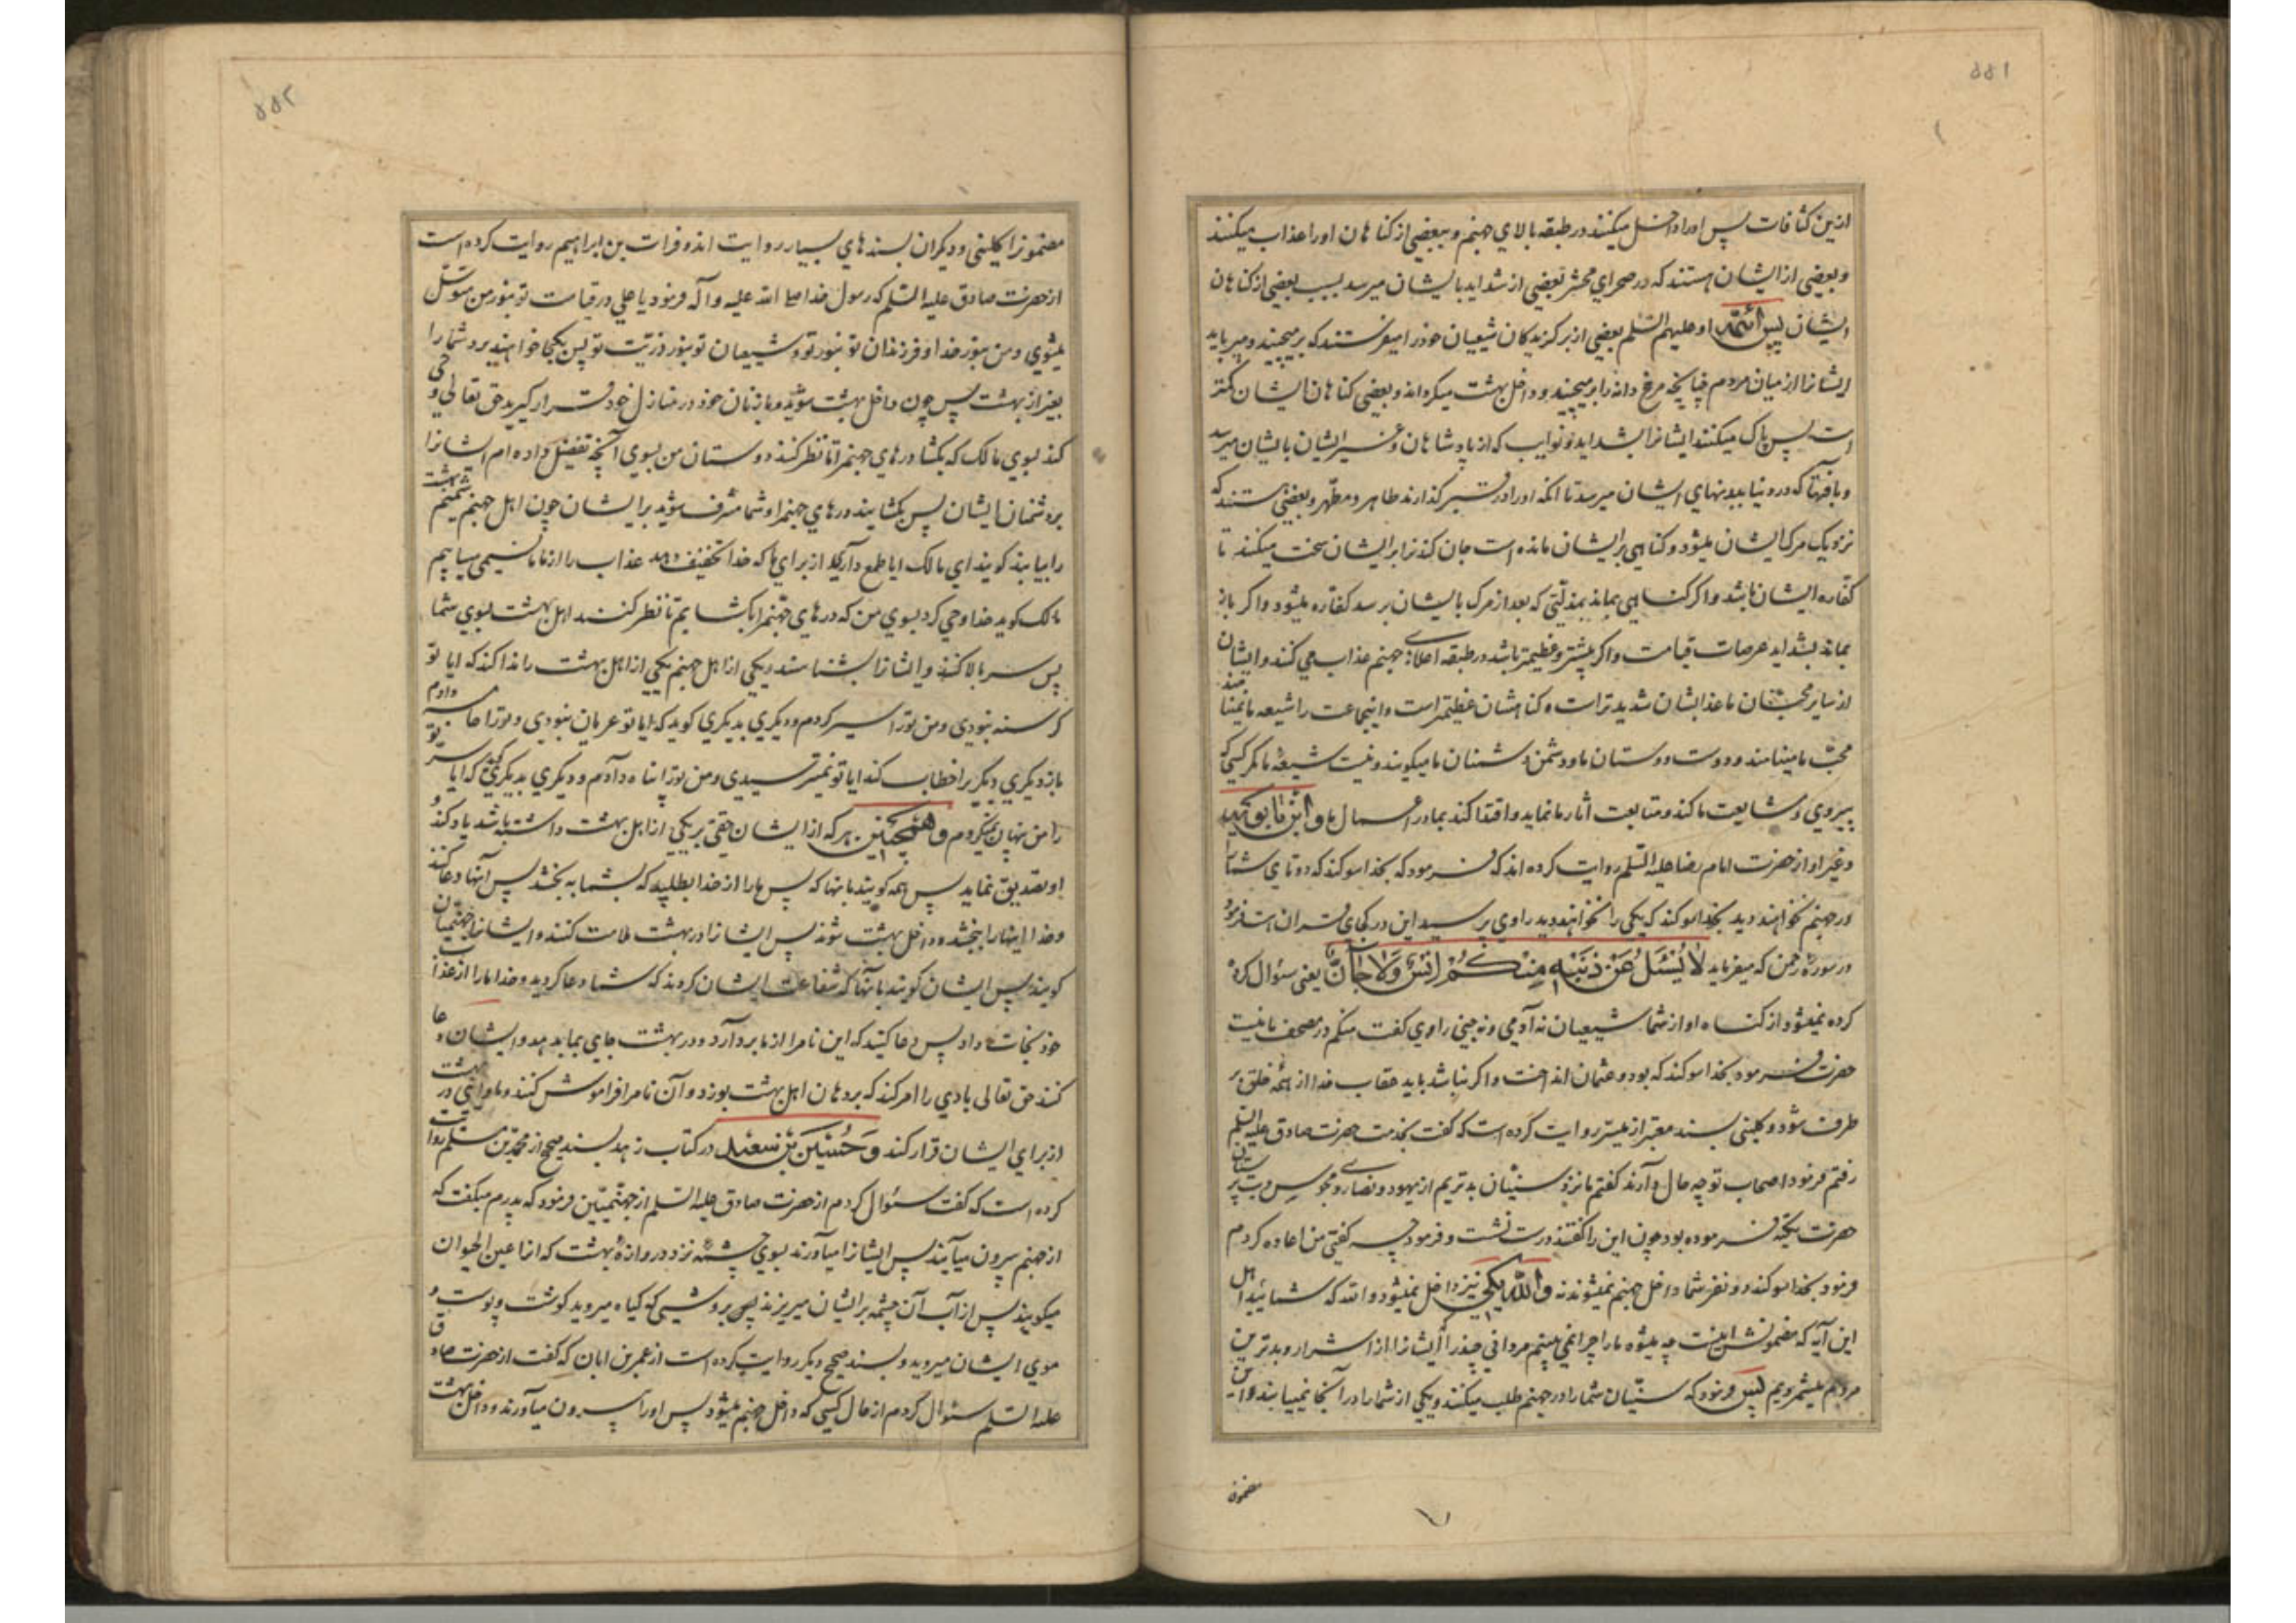 ۵۵۱
ازین کثافات پس او را داخل میکنند در طبقه بالای جهنم و ببعضی از کناهان او را عذاب میکنند
و بعضی از ایشان هستند که در صحرای محشر بعضی از شداید بایشان میرسد بسبب بعضی از کناهان
ایشان پس ائمه او علیهم السلم بعضی از برکزیدکان شیعیان خود را میفرستند که برمیچینند و میربایند
ایشانرا از میان مردم چنانچه مرغ دانه را برمیچیند و داخل بهشت میکرداند و بعضی کناهان ایشان کمتر
است پس پاک میکنند ایشانرا بشداید و نوایب که از پادشاهان و غیر ایشان بایشان میرسد
و بافتها که در دنیا ببدنهای ایشان میرسد تا انکه او را در قبر کذارند طاهر و مطهر و بعضی هستند که
نزدیک مرک ایشان میشود و کناهی بر ایشان مانده است جان کندنرا بر ایشان سخت میکنند تا
کفاره ایشان باشد و اکر کناهی بماند بمذلتی که بعد از مرک بایشان برسد کفاره میشود و اکر باز
بماند بشداید عرصات قیامت و اکر بیشتر و عظیمتر باشد در طبقه اعلای جهنم عذاب می کنند و ایشان
از سایر محبّان ما عذابشان شدیدتر است و کناهشان عظیمتر است و اینجماعت را شیعه ما نمینامند
محبّ ما مینامند و دوست دوستان ما و دشمن دشمنان ما میکویند و نیست شیعهٔ ما مکر کسی که
پیروی و مشایعت ما کند و متابعت اثار ما نماید و اقتدا کند بما در اعمال ما و ابن بابویه
و غیر او از حضرت امام رضا علیه السلم روایت کرده اند که فرمود که بخدا سوکند که دو تای شما را
در جهنم نخواهند دید بخدا سوکند که یکی را نخواهند دید راوی پرسید این در کجای قران است فرمود
در سورهٔ رحمن که میفرماید لا یُسئَلُ عَن ذَنبِهِ مِنکُم اِنسٌ وَلا جَآنٌّ یعنی سئوال کرده
کرده نمیشود از کناه او از شما شیعیان نه آدمی و نه جنی راوی کفت منکم در مصحف ما نیست
حضرت فرمود بخدا سوکند که بود و عثمان انداخت و اکر نباشد باید عقاب خدا از همه خلق بر
طرف شود و کلینی بسند معتبر از میسر روایت کرده است که کفت بخدمت حضرت صادق علیه السلم
رفتم فرمود اصحاب تو چه حال دارند کفتم ما نزد سنیان بدتریم از یهود و نصاری و مجوس و بت پرستان
حضرت تکیه فرموده بود چون این را کفتند درست نشست و فرمود چه کفتی من اعاده کردم
فرمود بخدا سوکند دو نفر شما داخل جهنم نمیشوند نه والله یکی نیز داخل نمیشود والله که شمائید اهل
این آیه که مضمونش اینست چه میشود ما را چرا نمی بینیم مردانی چند را ایشانرا از اشرار و بدترین
مردم میشمردیم پس فرمود که سنّیان شما را در جهنم طلب میکنند و یکی از شما را در آنجا نمییابند و این
مضمون
۵۵۲
مضمونرا کلینی و دیکران بسندهای بسیار روایت اند و فرات بن ابراهیم روایت کرده است
از حضرت صادق علیه السّلم که رسول خدا صلی الله علیه وآله فرمود یا علی در قیامت تو بنور من متوسّل
میشوی و من بنور خدا و فرزندان تو بنور تو و شیعیان تو بنور ذریّت تو پس بکجا خواهند برد شما را
بغیر از بهشت پس چون داخل بهشت شوید و با زنان خود در منازل خود قرار کیرید حق تعالی وحی
کند بسوی مالک که بکشا درهای جهنم را تا نظر کنند دوستان من بسوی آنچه تفضیل داده ام ایشانرا
بر دشمنان ایشان پس بکشایند درهای جهنم را و شما مشرف شوید بر ایشان چون اهل جهنم شمیم بهشت
را بیابند کویند ای مالک ایا طمع داری از برای ما که خدا تخفیف دهد عذاب را از ما ما نسیمی میابیم
مالک کوید خدا وحی کرد بسوی من که درهای جهنم را بکشایم تا نظر کنند اهل بهشت بسوی شما
پس سر بالا کنند و ایشانرا بشناسند و یکی از اهل جهنم یکی از اهل بهشت را ندا کند که ایا تو
کرسنه نبودی و من تو را سیر کردم و دیکری بدیکری کوید که ایا تو عریان نبودی و تو را جامه دادم
باز دیکری دیکریرا خطاب کند ایا تو نمیترسیدی و من تو را پناه دادم و دیکری بدیکری کوید که ایا سر تو
را من پنهان نکردم و همچنین هر که از ایشان حقی بر یکی از اهل بهشت داشته باشد یاد کند و
او تصدیق نماید پس همه کویند بانها که پس ما را از خدا بطلبید که بشما به بخشد پس آنها دعا کنند
و خدا اینها را ببخشد و داخل بهشت شوند پس ایشانرا در بهشت ملامت کنند و ایشانرا جهنمیان
کویند پس ایشان کویند بآنها که شفاعت ایشان کردند که شما دعا کردید و خدا ما را از عذاب
خود نجات داد پس دعا کنید که این نامرا از ما بردارد و در بهشت جای بما بدهد و ایشان دعا
کنند حق تعالی بادی را امر کند که بر دهان اهل بهشت بوزد و آن نامرا فراموش کنند و ماوائی در بهشت
از برای ایشان قرار کند وَحُسَین بن سَعید در کتاب زهد بسند صحیح از محمد بن مسلم روایت
کرده است که کفت سئوال کردم از حضرت صادق علیه السّلم از جهنّمیّین فرمود که پدرم میکفت که
از جهنم بیرون میآیند پس ایشانرا میآورند بسوی چشمهٔ نزد دروازهٔ بهشت که انرا عین الحیوان
میکویند پس از آب آن چشمه بر ایشان میریزند پس بروشی که کیاه میروید کوشت و پوست و
موی ایشان میروید و بسند صحیح دیکر روایت کرده است از عمر بن ابان که کفت از حضرت صادق
علیه السّلم سئوال کردم از حال کسی که داخل جهنم میشود پس او را بیرون میآورند و داخل بهشت